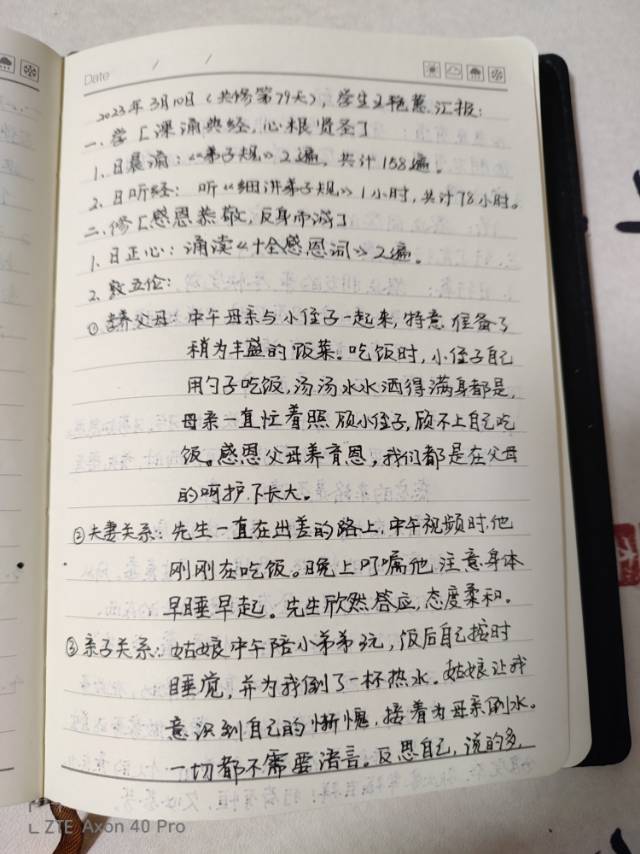 Date / /
2023年3月10日(共修第79天),学生王艳蕙汇报:
一、学[深诵典经,心根贤圣]
1、日晨诵:《弟子规》2遍,共计158遍。
2、日听经:听《细讲弟子规》1小时,共计78小时。
二、修[感恩恭敬,反身而诚]
1、日正心:诵读《十全感恩词》2遍。
2、敦五伦:
①孝养父母:中午母亲与小侄子一起来,特意准备了
稍为丰盛的饭菜。吃饭时,小侄子自己
用勺子吃饭,汤汤水水洒得满身都是,
母亲一直忙着照顾小侄子,顾不上自己吃
饭。感恩父母养育恩,我们都是在父母
的呵护下长大。
②夫妻关系:先生一直在出差的路上,中午视频时,他
刚刚在吃饭。晚上叮嘱他注意身体
早睡早起。先生欣然答应,态度柔和。
③亲子关系:姑娘中午陪小弟弟玩,饭后自己按时
睡觉,并为我倒了一杯热水。姑娘让我
意识到自己的惭愧,接着为母亲倒水。
一切都不需要语言。反思自己,说的多,
ZTE Axon 40 Pro